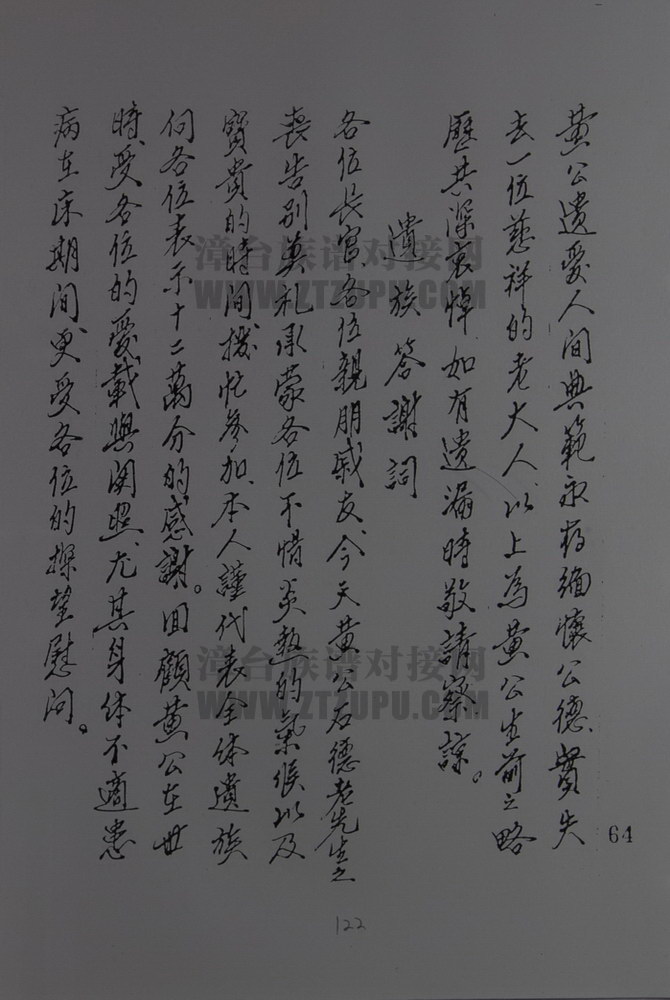 黄公遺愛人间典範永存緬懷公德實失
去一位慈祥的老大人以上為黄公生前之略
歷共深哀悼如有遺漏時敬請察諒。
遺族答謝詞
各位長官、各位親朋戚友、今天黄公石德老先生之
喪告別奠礼承蒙各位不惜炎熱的氣候以及
寶貴的時间撥忙參加、本人謹代表全体遺族
向各位表示十二萬分的感謝。回顧黄公在世
時、受各位的愛戴與関照、尤其身体不適患
病在床期间、更受各位的探望慰问。
64
122
漳台族谱对接网
WWW.ZTZUPU.COM
漳台族谱对接网
WWW.ZTZUPU.COM